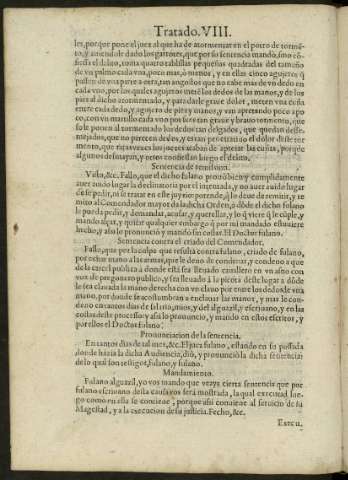 Tratado. VIII.
les, porque pone el juez al que ha de atormentar en el potro de tormẽ-
to, y auiendole dado los garrotes, que por su sentencia mandò, sino cõ-
fiessa el delito, toma quatro tablillas pequeñas quadradas del tamaño
de vn palmo cada vna, poco mas, ò menos, y en ellas cinco agujeros q̃
passen de vna parte a otra, tan angostos que no cabe mas de vn dedo en
cada vno, por los quales agujeros metẽ los dedos de las manos, y de los
pies al dicho atormentado, y para darle graue dolor, meten vna cuña
entre cada dedo, y agujero de pies y manos, y van apretando poco apo-
co, con vn martillo cada vno
poner al tormento los dedos tan delgados, que quedan desse-
mejados, que no parecen dedos, y estan
to, que raras vezes los juezes acaban de apretar las cuñas, porque
algunos desmayan, y otros confiessan luego el delito.
Sentencia de remission.
Vista, &c. Fallo, que el dicho fulano prouò bien y cumplidamente
auer auido lugar la declinatoria por el intentada, y no auer auido lugar
de se pedir, ni se tratar en este juyzio
mito al Comendador mayor de la dicha Orden, à dõde el dicho fulano
le pueda pedir, y demandar, acusar, y querellar, y lo q̃ viere q̃ le cũple, y
mando alçar, y quitar qualquier embargo q̃ por mi mandado estuuiere
hecho, y assi lo pronuncio y mando sin costas. El Doctor fulano.
Sentencia contra el criado del Comendador.
Fallo, que por la culpa que resulta contra fulano, criado de fulano,
por echar mano a las armas, que le deuo de condenar, y condeno a que
de la carcel publica a donde està sea lleuado cauallero en vn asno con
voz de pregonero publico, y sea lleuado à la picota deste lugar a dõde
le sea clauada la mano derecha con vn clauo por entre los dedos de la
mano, por donde se acostumbran a enclauar las manos, y mas le conde-
no en tantos dias de salario, mios, y del alguazil, y escriuano, y en las
costas deste processo y assi lo pronuncio, y mando en estos escritos, y
por ellos el Doctor fulano.
Pronunciacion de la sentencia.
En tantos dias de tal mes, &c. El juez fulano, estando en su posada
donde hazia la dicha Audiencia, diò, y pronunciò la dicha sentencia:
de lo qual son testigos, fulano, y fulano.
Mandamiento.
Fulano alguazil, yo vos mando que veays cierta sentencia que por
fulano escriuano desta causa vos serà mostrada, la qual executad lue-
go como en ella se contiene, porque assi conuiene al seruicio de su
Magestad, y a la execucion de su justicia. Fecho, &c.
Execu-